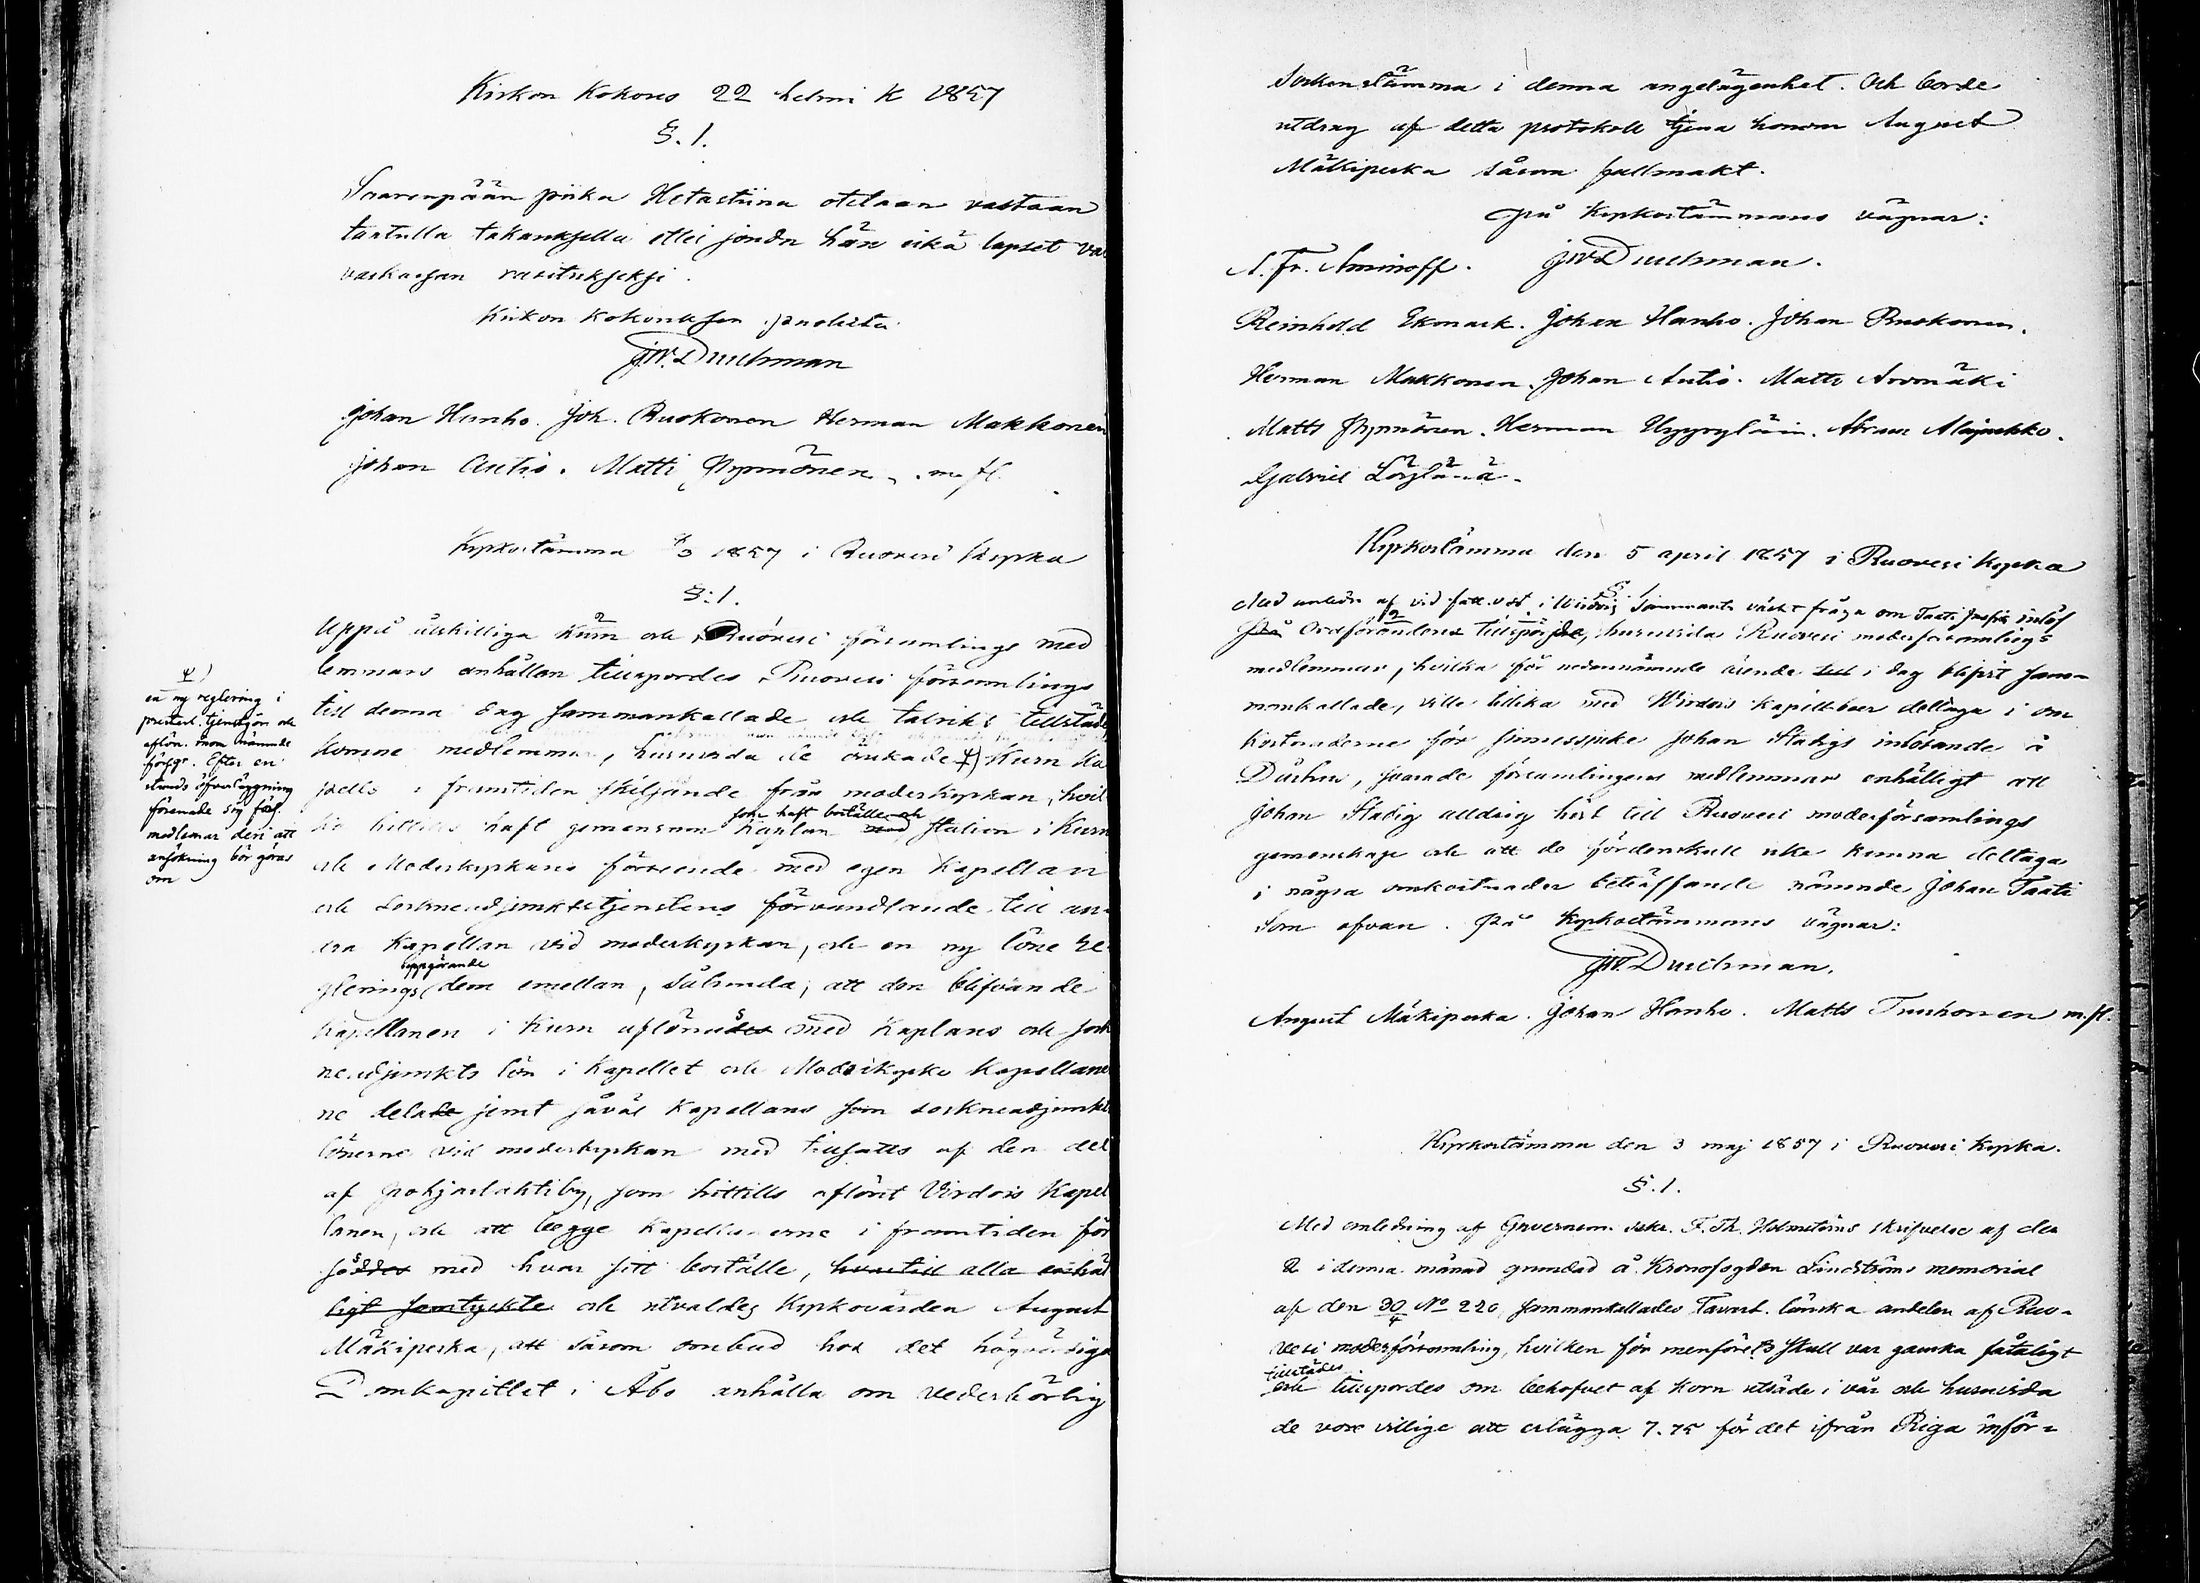 Kirkon Kokous 22 helmi k 1857
§. 1.
Saarenpään piika Hetastiina otetaan vastaan
taatulla takauksella ettei joudu hän eikä lapset vai
vaishoosan rasitukseksi.
Kirkon kokouksen puolesta
J.W. Durchman
Johan Hanho. Joh. Ruokonen Herman Makkonen
Johan Autio. Matti Pynnönen, m. fl.
Kyrkostämma 1/3 1857 i Ruovesi Kyrka
§: 1.
Uppå åtskilliga Kuru och Ruovesi församlings med
lemmars anhållan tillspordes Ruovesi församlings
till denna dag sammankallade och talrikt tillstädes
komne medlemmar, huruvida de önskade ψ) Kuru Ka
pells i framtiden skiljande från moderkyrkan, hvil
ka hittills haft gemensam Kaplan som haft boställe och station i Kuru
och Moderkyrkans förseende med egen Kapellan
och Sockneadjunktstjenstens förvandlande till an-
dra Kapellan vid moderkyrkan, och en ny löne re
glerings uppgörande dem emellan, sålunda, att den blifvande
Kapellanen i Kuru aflönades med Kaplans och sock
neadjunkts lön i Kapellet och Moderkyrko Kapellane
ne delade jemt såväl Kapellans som sockneadjunkts
lönerne vid moderkyrkan med tillsatts af den del
af Pohjaslahtiby, som hittills aflönt Virdois Kapel
lanen, och att begge Kapellanerne i framtiden för
såddes med hvar sitt boställe, hvartill alla enhäl
ligt samtyckte och utvaldes Kyrkovärden August
Mäkipeska, att såsom ombud hos det högvördiga
Domkapitlet i Åbo anhålla om vederbörlig
ψ)
en ny reglering i
presterl. tjenstgör. och
aflön. inom nämnde
förs:gr. Efter en
stunds öfverläggning
förenade sig förs.
medlemar deri att
ansökning bör göras
om
Sockenstämma i denna angelägenhet. Och borde
utdrag af detta protokoll tjena honom August
Mäkipeska såsom fullmakt.
På Kyrkostämmans vägnar:
A. Fr. Aminoff. J W Durchman.
Reinhold Ekmark. Johan Hanho. Johan Ruokonen.
Herman Makkonen. Johan Autio. Matts Arvmäki
Matts Pynnönen. Herman Ylppylän. Abram Alajaskko.
Gabriel Löyläinä.
Kyrkostämma den 5 april 1857 i Ruovesi Kyrka
§. 1.
Med anledn af vid fatt.vst. i Wirdois Sammants väckt fråga om Taati Josefs inlös
På Ordförandens tillspörjde, huruvida Ruovesi moderförsamlings
medlemmar, hvilka för nedannämnde ärende till i dag blifvit sam-
mankallade, ville tillika med Wirdois Kapellboer deltaga i om
kostnaderne för sinnessjuke Johan Stadigs inlösande å
Dårhus, svarade församlingens medlemmar enhälligt att
Johan Stadig alldrig hört till Ruovesi moderförsamlings
gemenskap och att de fördenskull icke kunna deltaga
i några omkostnader beträffande nämnde Johan Taati
Som ofvan. På Kyrkostämmans vägnar:
J.W. Durchman.
August Mäkipeska. Johan Hanho. Matts Tuuhonen m.fl.
Kyrkostämma den 3 maj 1857 i Ruovesi Kyrka.
§. 1.
Med anledning af Guvernem. sekr. F. Th. Holmströms skrifvelse af den
2 i denna månad grundad å Kronofogden Lindströms memorial
af den 30/4 No 220 sammankallades Tavast. länska andelen af Ruo-
vesi moderförsamling, hvilken för menföre's skull var ganska fåtaligt
tillstädes och tillspordes om behofvet af Korn utsäde i vår och huruvida
de vore villige att erlägga 7.75 för det ifrån Riga inför-